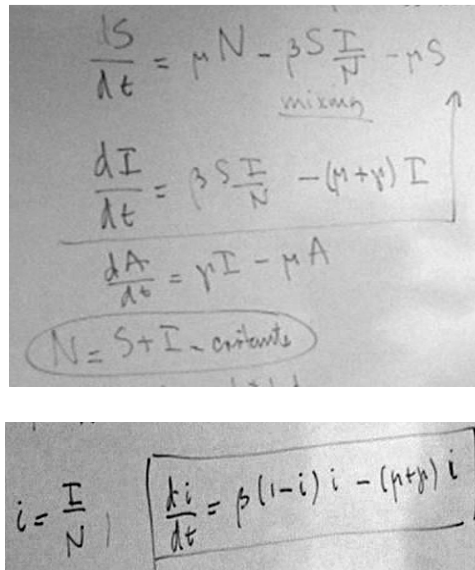 dS/dt = μN - βS I/N - μS
mixing
dI/dt = βS I/N - (μ+γ) I
dA/dt = γI - μA
N = S + I
i = I/N, di/dt = β(1-i) i - (μ+γ) i